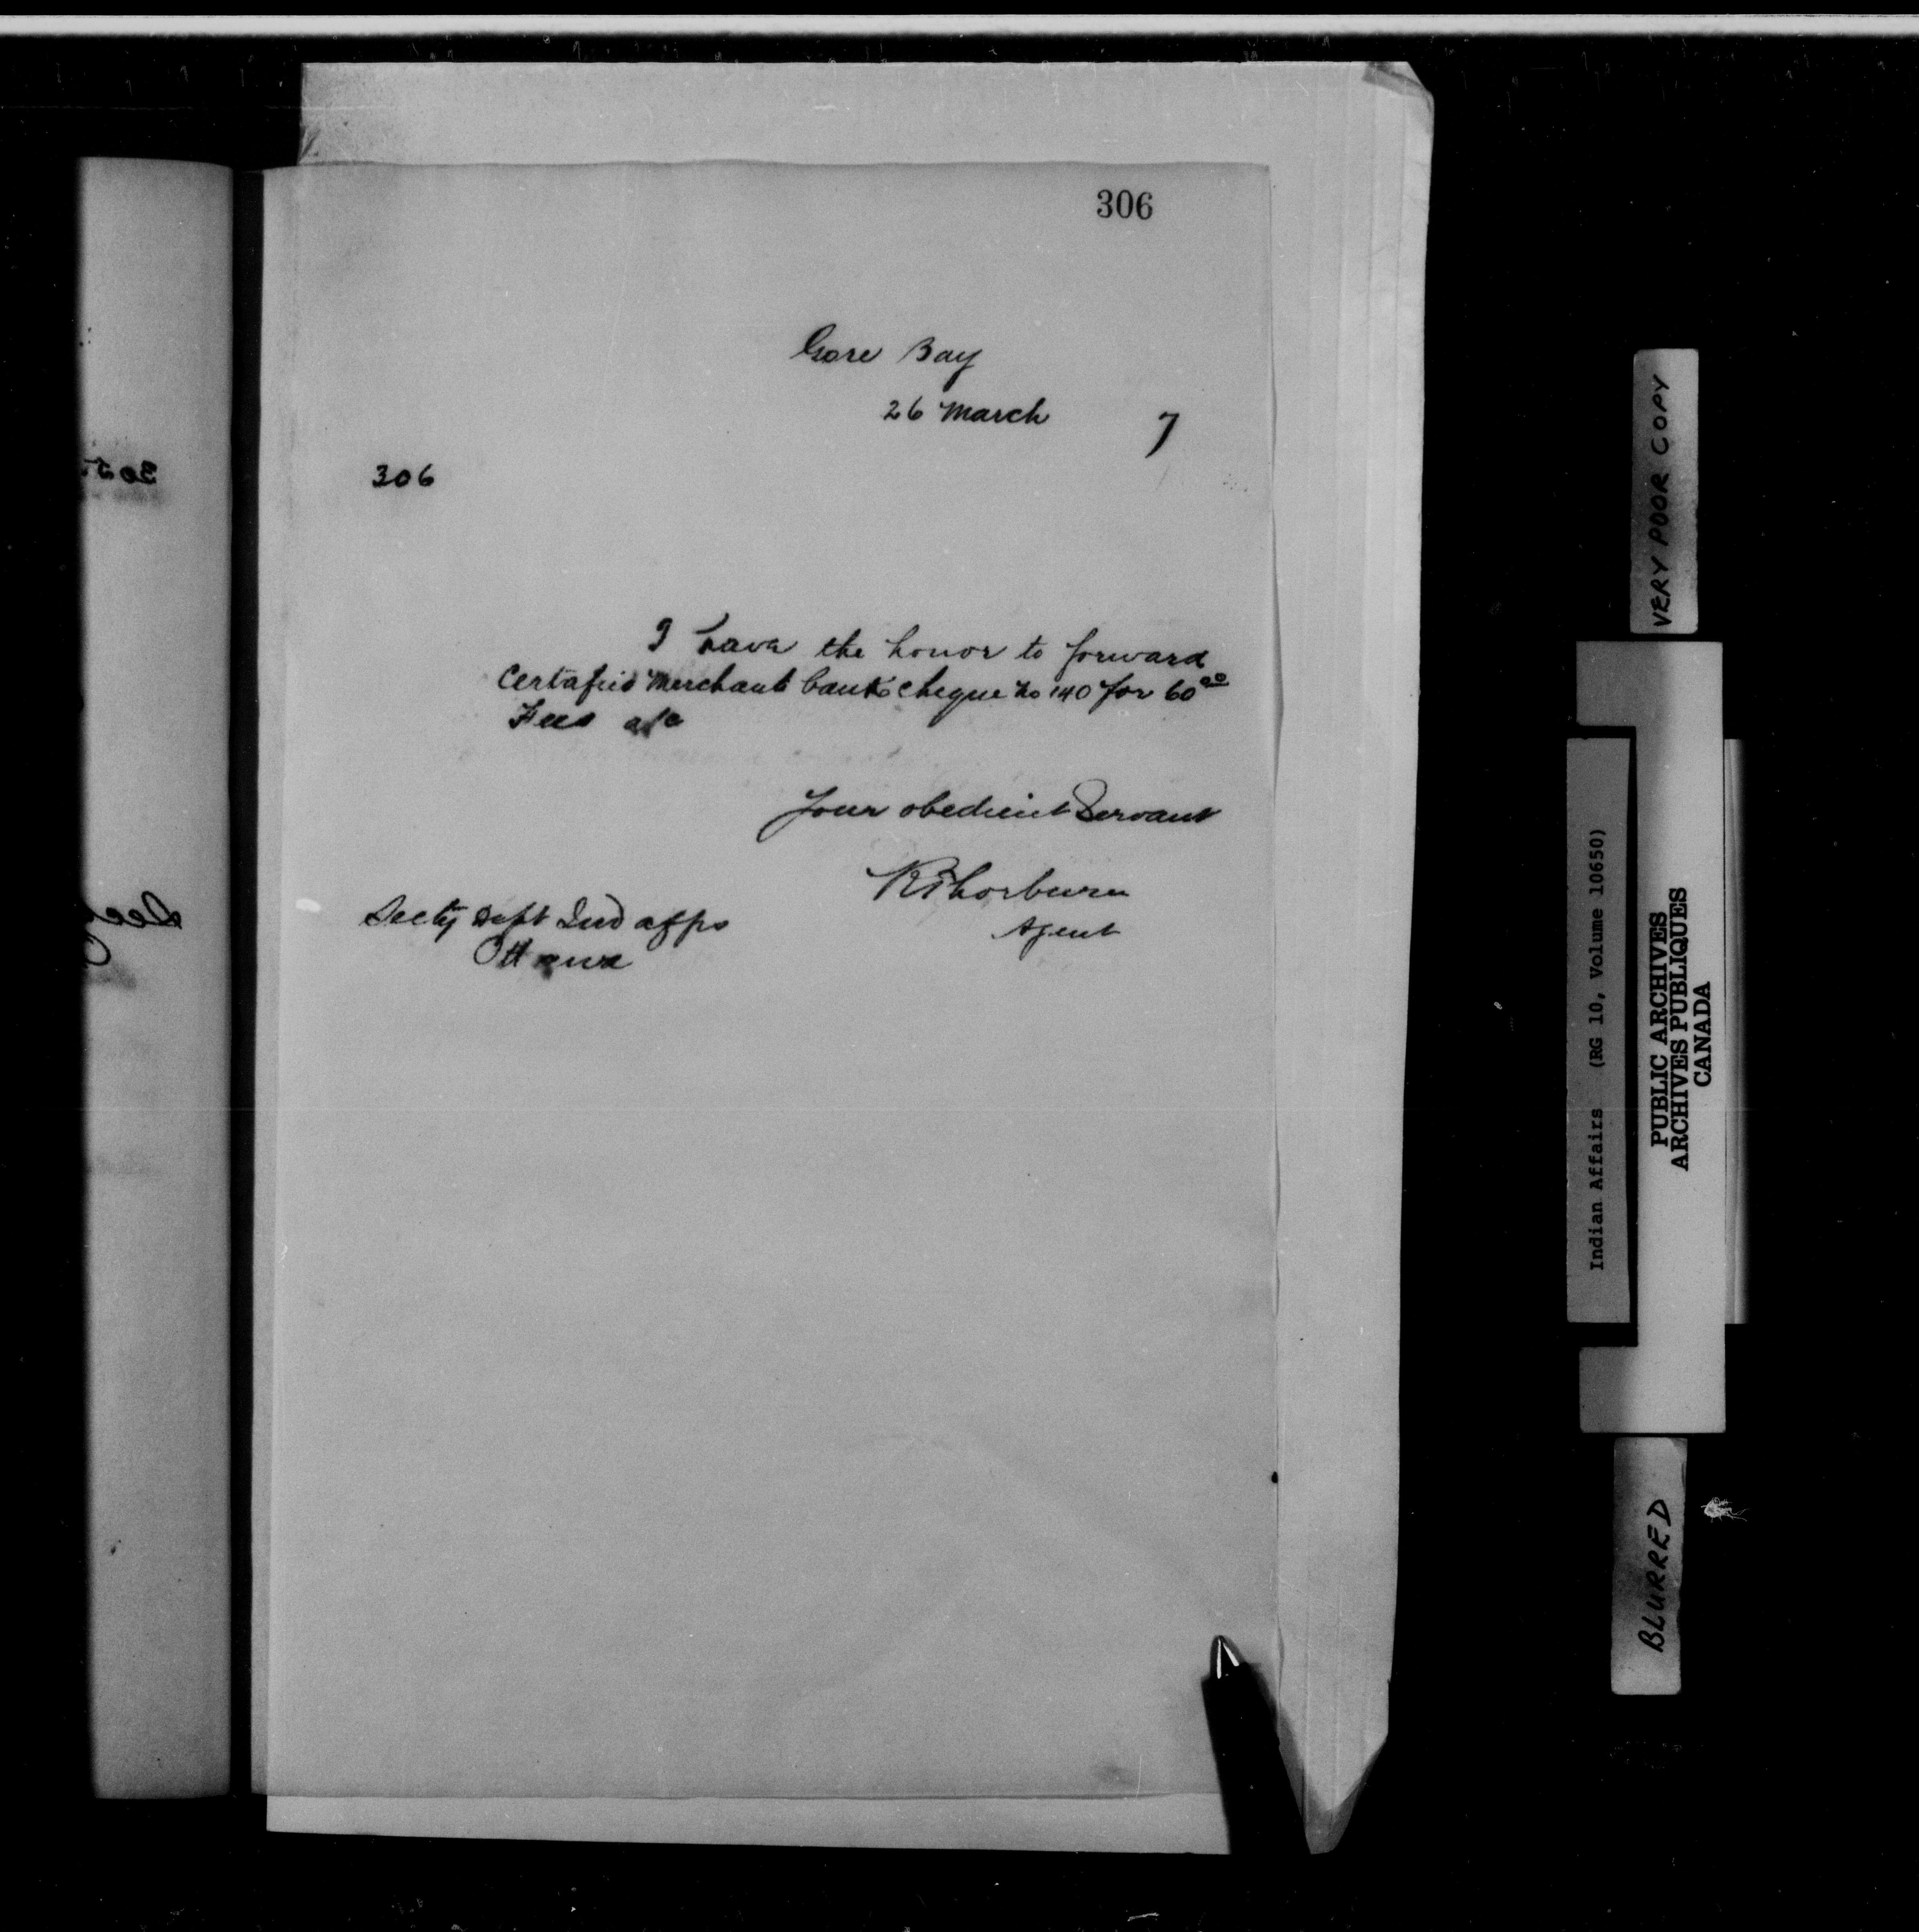 306
Gore Bay
26 March 7
306
I have the honor to forward
Certafied Merchants bank cheque no 140 for 60 00
Fees a/c
Your obedient Servant
R Thorburn
Agent
Secty Dept Ind affrs
Ottawa
VERY POOR COPY
Indian Affairs (RG 10, Volume 10650)
PUBLIC ARCHIVES
ARCHIVES PUBLIQUES
CANADA
BLURRED